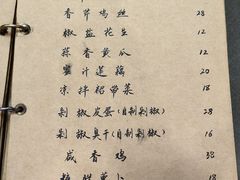 香芹鸡丝 28
椒盐花生 12
蒜香黄瓜 12
蜜汁莲藕 20
凉拌裙带菜 18
剁椒皮蛋(自制剁椒) 28
剁椒臭干(自制剁椒) 16
咸香鸡 38
萝卜 18